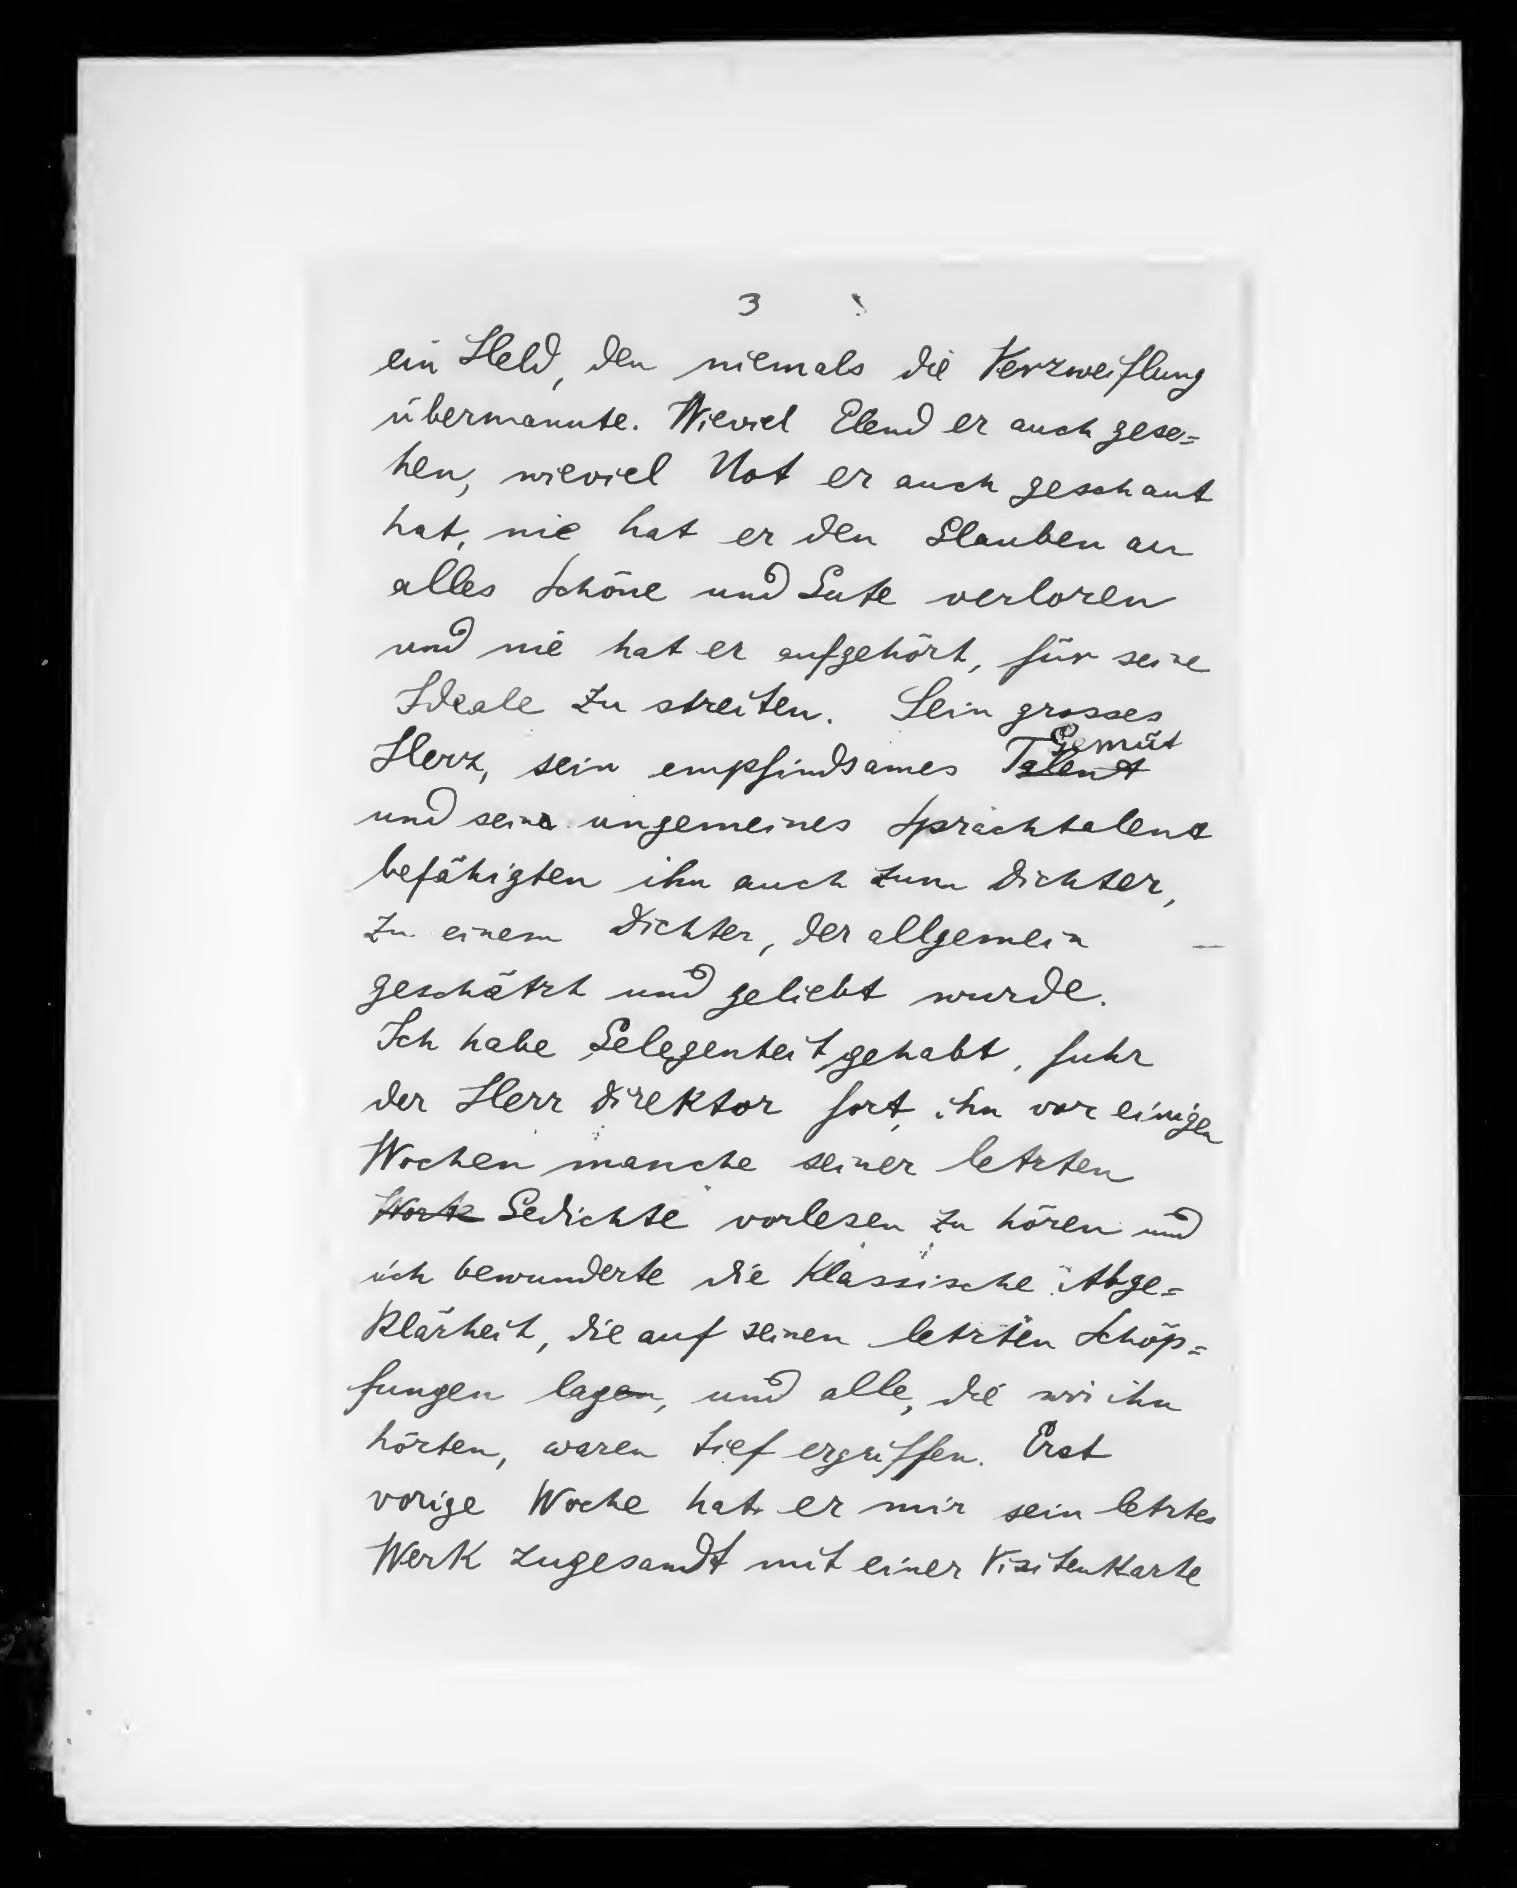 3
ein Held, den niemals die Verzweiflung
übermannte. Wieviel Elend er auch gese=
hen, wieviel Not er auch geschaut
hat, nie hat er den Glauben an
alles Schöne und Gute verloren
und nie hat er aufgehört, für seine
Ideale zu streiten. Sein grosses
Gemüt
Herz, sein empfindsames Talent
und sein ungemeines Sprachtalent
befähigten ihn auch zum Dichter,
zu einem Dichter, der allgemein
geschätzt und geliebt wurde.
Ich habe Gelegenheit gehabt, fuhr
der Herr Direktor fort, ihn vor einigen
Wochen manche seiner letzten
Gedichte vorlesen zu hören und
ich bewunderte die klassische Abge=
klärheit, die auf seinen letzten Schöp=
fungen lagen, und alle, die wir ihn
hörten, waren tief ergriffen. Erst
vorige Woche hat er mir sein letztes
Werk zugesandt mit einer Visitenkarte